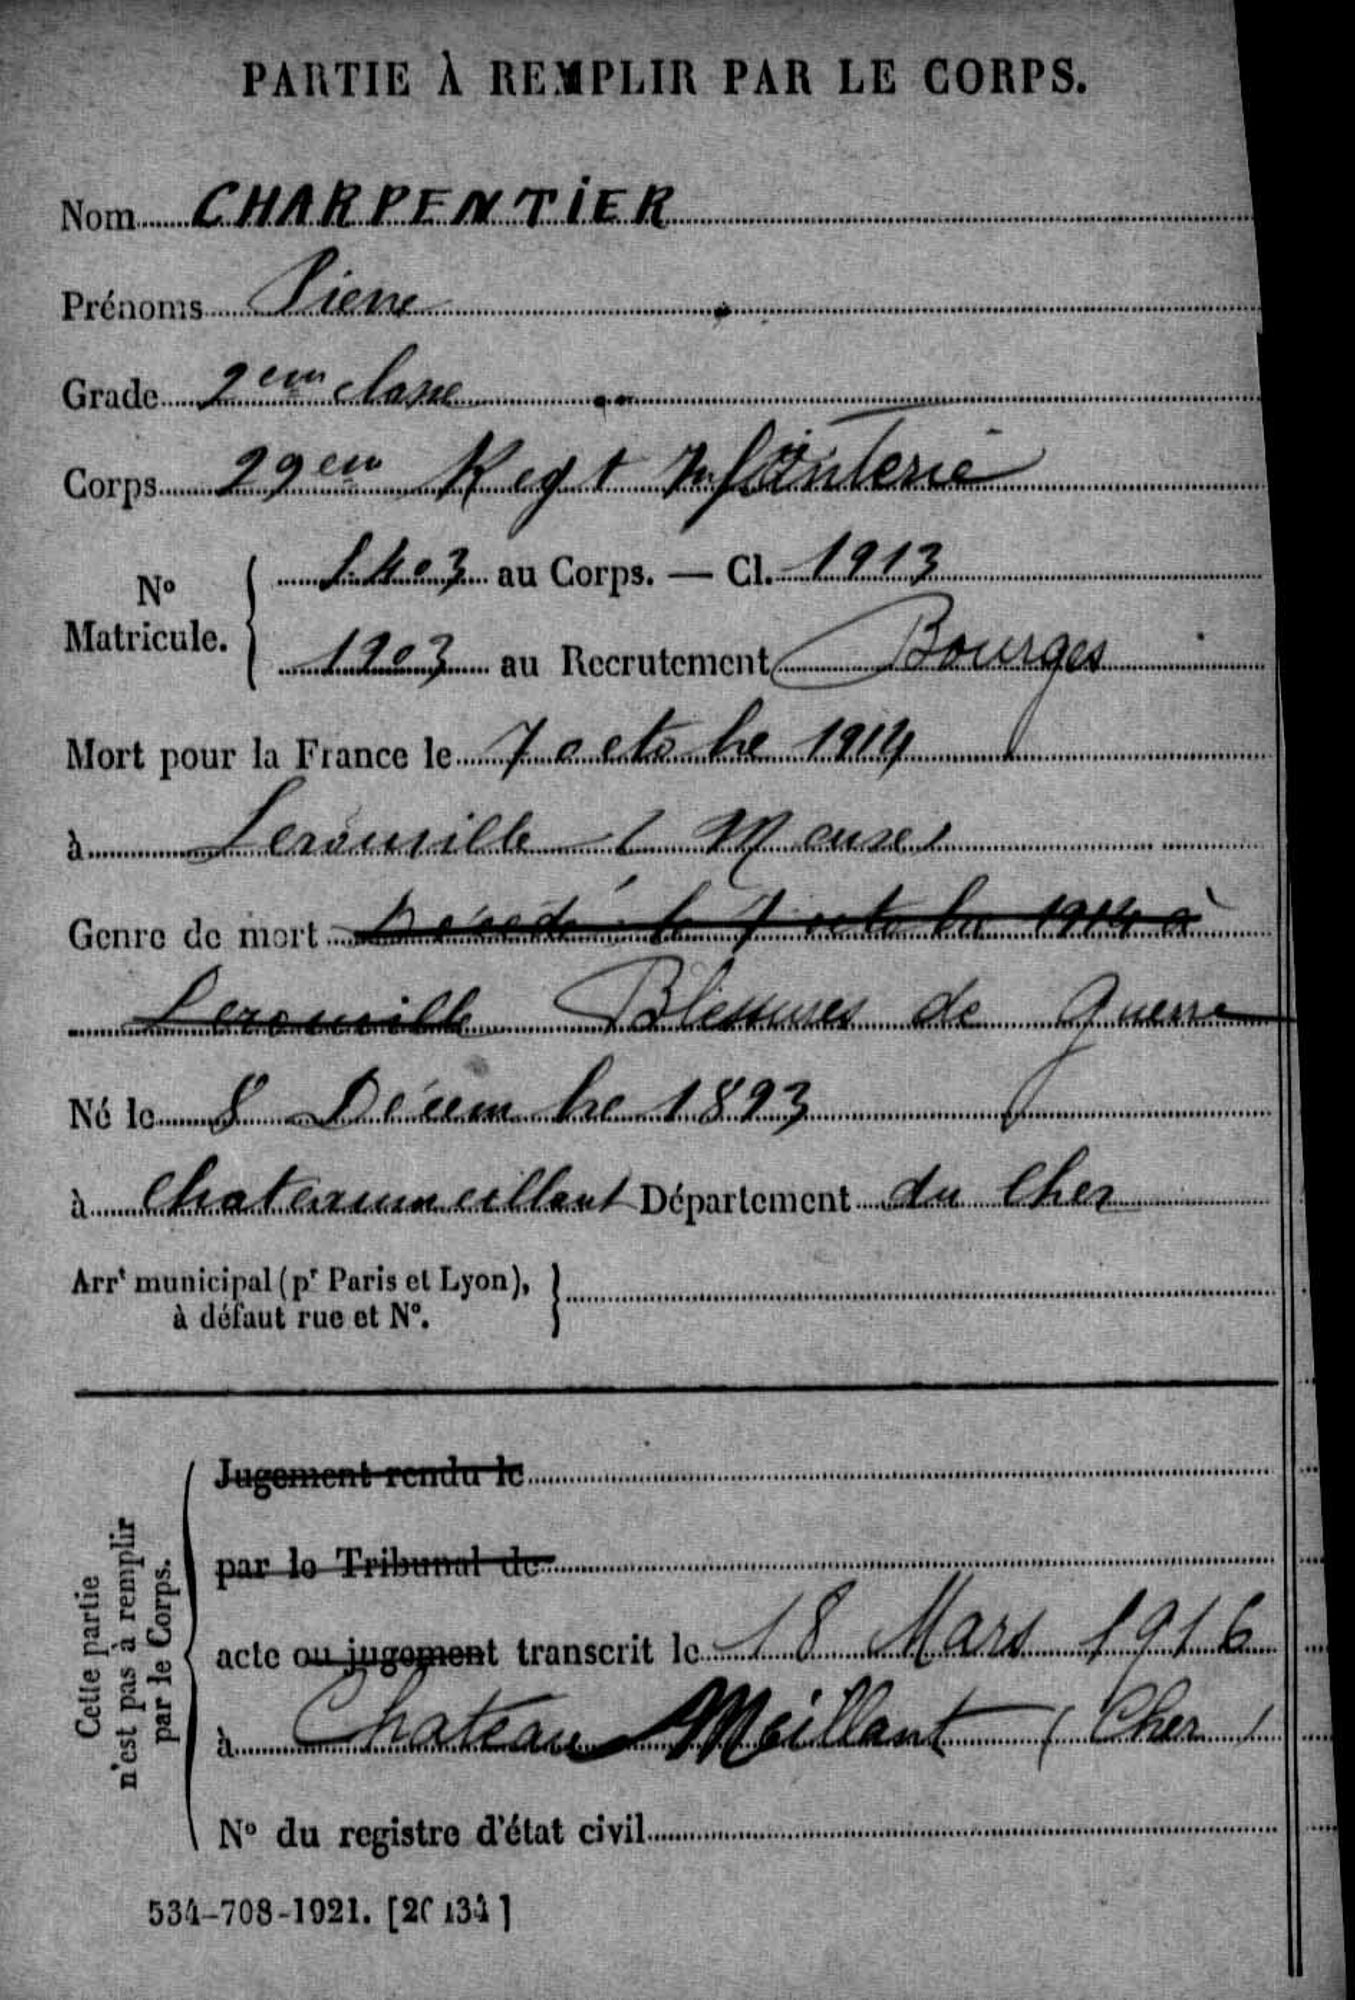 PARTIE À REMPLIR PAR LE CORPS.
Nom CHARPENTIER
Prénoms Pierre
Grade 2em classe
Corps 29em Regt Infanterie
No Matricule. { 5403 au Corps. — Cl. 1913
1203 au Recrutement Bourges
Mort pour la France le 7 octobre 1914
à Lerouville ( Meuse )
Genre de mort Décédé le 7 octobre 1914 à
Lerouville Blessures de guerre
Né le 8 Décembre 1893
à Chateaumeillant Département du Cher
Arrt municipal (pr Paris et Lyon), }
à défaut rue et No.
Cette partie
n'est pas à remplir
par le Corps.
Jugement rendu le
par le Tribunal de
acte ou jugement transcrit le 18 Mars 1916
à Chateau Meillant ( Cher )
No du registre d'état civil
534-708-1921.